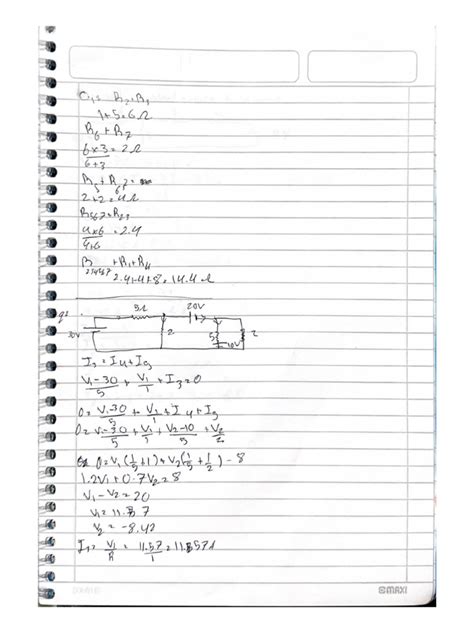 Q1= R2+R3
1+5=6Ω
R6+R7
6×3=2Ω
6+3
R5+R67=
2+2=4Ω
R567=R23
4×6=2.4
4+6
R234567+R1+R4
2.4+4+8=14.4Ω
Q2.
5Ω
20V
30V
2
5
10V
2
I2=I4+I5
V1-30/5+V1/1+I3=0
0=V1-30/5+V1/1+I4+I5
0=V1-30/5+V1/1+V2-10/5+V2/2
0=V1(1/5+1)+V2(1/5+1/2)-8
1.2V1+0.7V2=8
V1-V2=20
V1=11.57
V2=-8.42
I2=V1/R=11.57/1=11.57A
MAXI